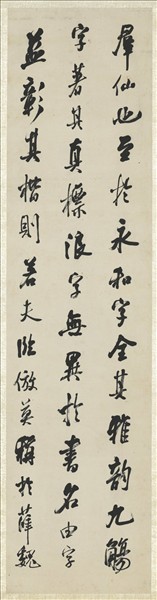 羣仙也至於永和字全其雅韵九觴
字著其真標浪字無異於書名由字
益彰其楷則若夫臨倣莫稱於薛魏